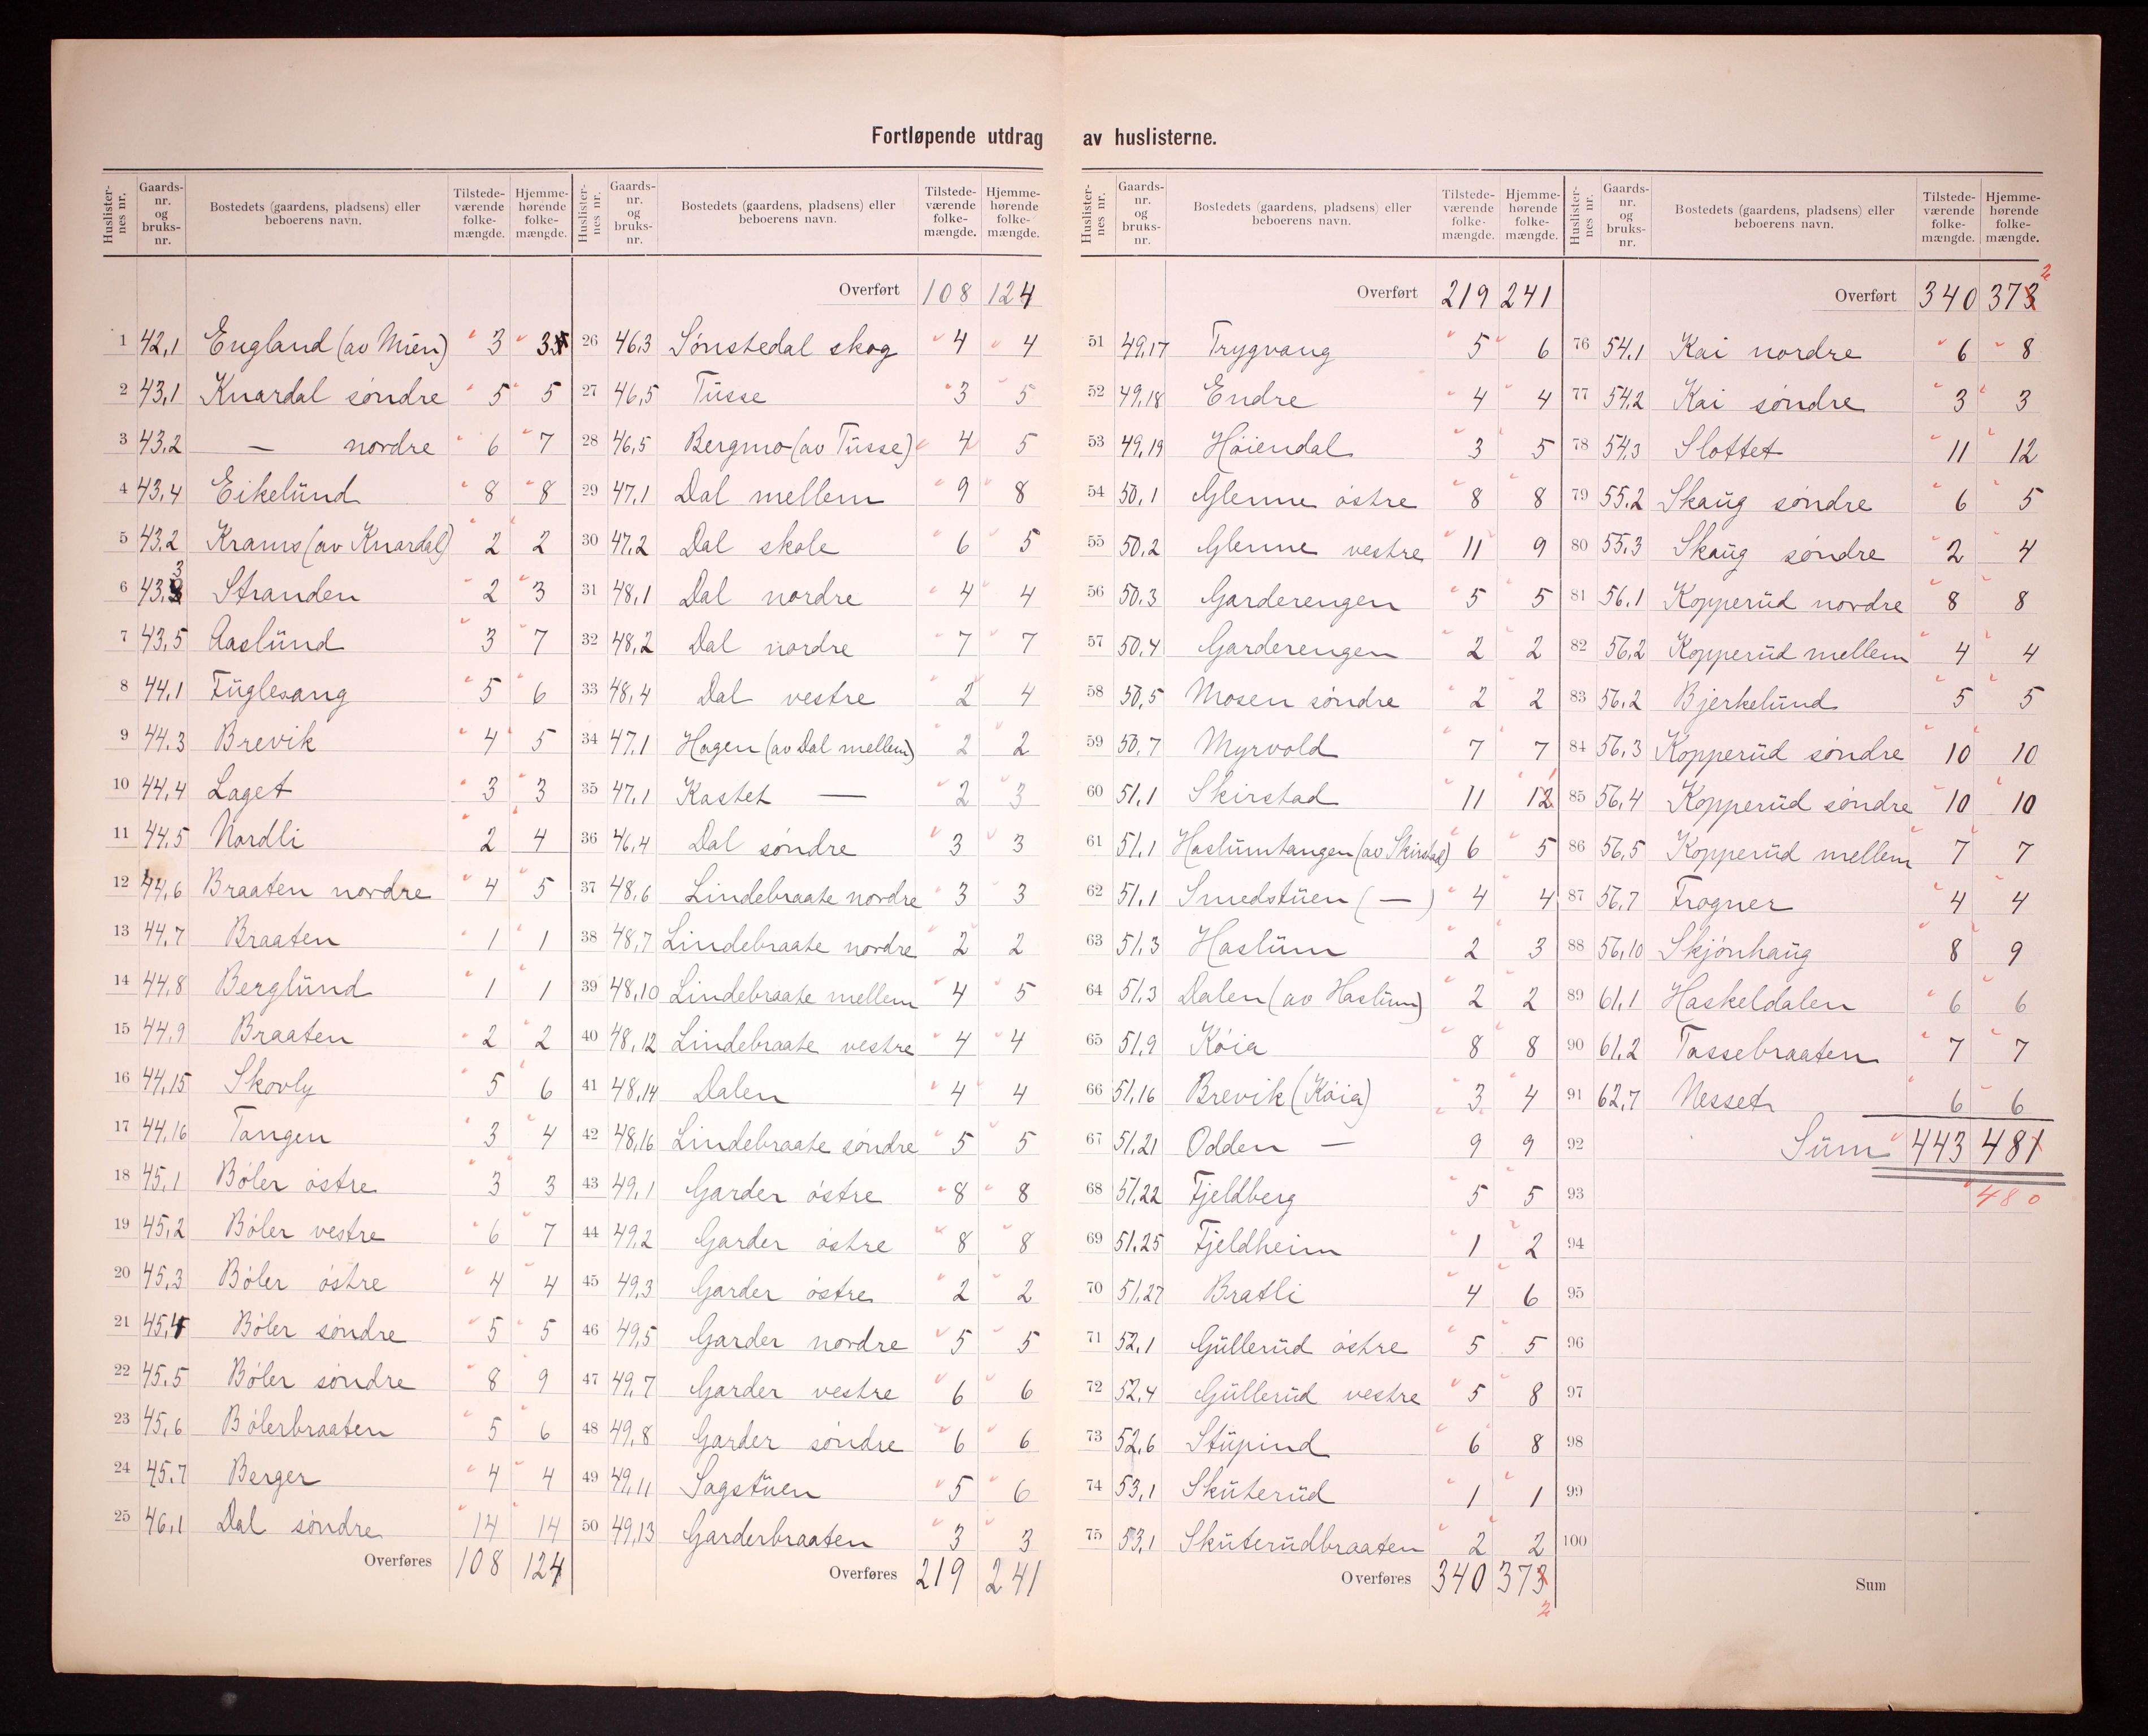 Fortløpende utdrag av huslisterne.
Huslisternes nr. Gaards-nr. og bruks-nr. Bostedets (gaardens, pladsens) eller beboerens navn. Tilstedeværende folkemængde. Hjemmehørende folkemængde.
1 42,1 England (av Mien) 3 3
2 43,1 Knardal søndre 5 5
3 43,2 — nordre 6 7
4 43,4 Eikelund 8 8
5 43,2 Krams (av Knardal) 2 2
6 43,3 Stranden 2 3
7 43,5 Aaslund 3 7
8 44,1 Fuglesang 5 6
9 44,3 Brevik 4 5
10 44,4 Laget 3 3
11 44,5 Nordli 2 4
12 44,6 Braaten nordre 4 5
13 44,7 Braaten 1 1
14 44,8 Berglund 1 1
15 44,9 Braaten 2 2
16 44,15 Skovly 5 6
17 44,16 Tangen 3 4
18 45,1 Bøler østre 3 3
19 45,2 Bøler vestre 6 7
20 45,3 Bøler østre 4 4
21 45,4 Bøler søndre 5 5
22 45,5 Bøler søndre 8 9
23 45,6 Bølerbraaten 5 6
24 45,7 Berger 4 4
25 46,1 Dal søndre 14 14
Overføres 108 124
Huslisternes nr. Gaards-nr. og bruks-nr. Bostedets (gaardens, pladsens) eller beboerens navn. Tilstedeværende folkemængde. Hjemmehørende folkemængde.
Overført 108 124
26 46,3 Sønstedal skog 4 4
27 46,5 Tusse 3 5
28 46,5 Bergmo (av Tusse) 4 5
29 47,1 Dal mellem 9 8
30 47,2 Dal skole 6 5
31 48,1 Dal nordre 4 4
32 48,2 Dal nordre 7 7
33 48,4 Dal vestre 2 4
34 47,1 Hagen (av Dal mellem) 2 2
35 47,1 Kastet — 2 3
36 46,4 Dal søndre 3 3
37 48,6 Lindebraate nordre 3 3
38 48,7 Lindebraate nordre 2 2
39 48,10 Lindebraate mellem 4 5
40 48,12 Lindebraate vestre 4 4
41 48,14 Dalen 4 4
42 48,16 Lindebraate søndre 5 5
43 49,1 Garder østre 8 8
44 49,2 Garder østre 8 8
45 49,3 Garder østre 2 2
46 49,5 Garder nordre 5 5
47 49,7 Garder vestre 6 6
48 49,8 Garder søndre 6 6
49 49,11 Sagstuen 5 6
50 49,13 Garderbraaten 3 3
Overføres 219 241
Huslisternes nr. Gaards-nr. og bruks-nr. Bostedets (gaardens, pladsens) eller beboerens navn. Tilstedeværende folkemængde. Hjemmehørende folkemængde.
Overført 219 241
51 49,17 Trygvang 5 6
52 49,18 Endre 4 4
53 49,19 Høiendal 3 5
54 50,1 Glenne østre 8 8
55 50,2 Glenne vestre 11 9
56 50,3 Garderengen 5 5
57 50,4 Garderengen 2 2
58 50,5 Mosen søndre 2 2
59 50,7 Myrvold 7 7
60 51,1 Skirstad 11 12
61 51,1 Haslumtangen (av Skirstad) 6 5
62 51,1 Smedstuen (—) 4 4
63 51,3 Haslum 2 3
64 51,3 Dalen (av Haslum) 2 2
65 51,9 Køia 8 8
66 51,16 Brevik (Køia) 3 4
67 51,21 Odden — 9 9
68 51,22 Fjeldberg 5 5
69 51,25 Fjeldheim 1 2
70 51,27 Bratli 4 6
71 52,1 Gullerud østre 5 5
72 52,4 Gullerud vestre 5 8
73 52,6 Stupind 6 8
74 53,1 Skuterud 1 1
75 53,1 Skuterudbraaten 2 2
Overføres 340 373
2
Huslisternes nr. Gaards-nr. og bruks-nr. Bostedets (gaardens, pladsens) eller beboerens navn. Tilstedeværende folkemængde. Hjemmehørende folkemængde.
2
Overført 340 373
76 54,1 Kai nordre 6 8
77 54,2 Kai søndre 3 3
78 54,3 Slottet 11 12
79 55,2 Skaug søndre 6 5
80 55,3 Skaug søndre 2 4
81 56,1 Kopperud nordre 8 8
82 56,2 Kopperud mellem 4 4
83 56,2 Bjerkelund 5 5
84 56,3 Kopperud søndre 10 10
85 56,4 Kopperud søndre 10 10
86 56,5 Kopperud mellem 7 7
87 56,7 Frogner 4 4
88 56,10 Skjønhaug 8 9
89 61,1 Haskeldalen 6 6
90 61,2 Tassebraaten 7 7
91 62,7 Nesset 6 6
92 Sum 443 481
93 480
94
95
96
97
98
99
100
Sum